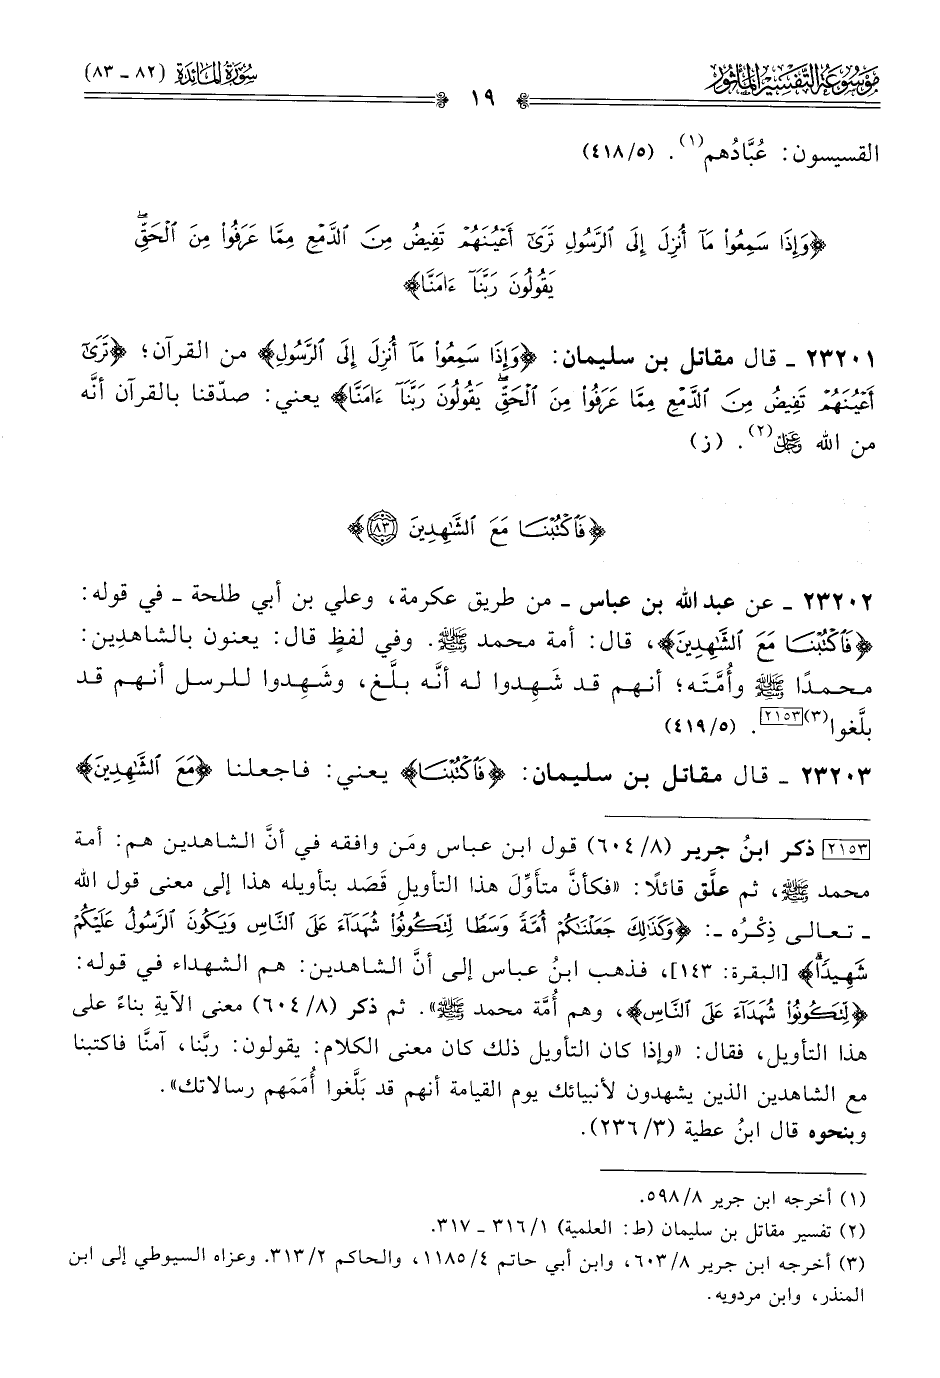 مَوْسُوعَةُ التَّفْسِيرِ المَأْثُورِ
١٩
سُورَةُ المَائِدَة (٨٢ - ٨٣)
القسيسون: عُبَّادُهم(١). (٤١٨/٥)
﴿وَإِذَا سَمِعُوا۟ مَآ أُنزِلَ إِلَى ٱلرَّسُولِ تَرَىٰٓ أَعْيُنَهُمْ تَفِيضُ مِنَ ٱلدَّمْعِ مِمَّا عَرَفُوا۟ مِنَ ٱلْحَقِّۖ
يَقُولُونَ رَبَّنَآ ءَامَنَّا﴾
٢٣٢٠١ - قال مقاتل بن سليمان: ﴿وَإِذَا سَمِعُوا۟ مَآ أُنزِلَ إِلَى ٱلرَّسُولِ﴾ من القرآن؛ ﴿تَرَىٰٓ
أَعْيُنَهُمْ تَفِيضُ مِنَ ٱلدَّمْعِ مِمَّا عَرَفُوا۟ مِنَ ٱلْحَقِّۖ يَقُولُونَ رَبَّنَآ ءَامَنَّا﴾ يعني: صدّقنا بالقرآن أنَّه
من الله عز وجل(٢). (ز)
﴿فَٱكْتُبْنَا مَعَ ٱلشَّٰهِدِينَ ٨٣﴾
٢٣٢٠٢ - عن عبد الله بن عباس - من طريق عكرمة، وعلي بن أبي طلحة - في قوله:
﴿فَٱكْتُبْنَا مَعَ ٱلشَّٰهِدِينَ﴾، قال: أمة محمد ﷺ. وفي لفظٍ قال: يعنون بالشاهدِين:
محمدًا ﷺ وأُمَّته؛ أنهم قد شَهِدوا له أنَّه بلَّغ، وشَهِدوا للرسل أنهم قد
بلَّغوا(٣)[٢١٥٣]. (٤١٩/٥)
٢٣٢٠٣ - قال مقاتل بن سليمان: ﴿فَٱكْتُبْنَا﴾ يعني: فاجعلنا ﴿مَعَ ٱلشَّٰهِدِينَ﴾
[٢١٥٣] ذكر ابنُ جرير (٦٠٤/٨) قول ابن عباس ومَن وافقه في أنَّ الشاهدين هم: أمة
محمد ﷺ، ثم علَّق قائلًا: «فكأنَّ متأوِّلَ هذا التأويلِ قَصَد بتأويله هذا إلى معنى قول الله
- تعالى ذِكْرُه -: ﴿وَكَذَٰلِكَ جَعَلْنَٰكُمْ أُمَّةً وَسَطًا لِّتَكُونُوا۟ شُهَدَآءَ عَلَى ٱلنَّاسِ وَيَكُونَ ٱلرَّسُولُ عَلَيْكُمْ
شَهِيدًاۗ﴾ [البقرة: ١٤٣]، فذهب ابنُ عباس إلى أنَّ الشاهدين: هم الشهداء في قوله:
﴿لِّتَكُونُوا۟ شُهَدَآءَ عَلَى ٱلنَّاسِ﴾، وهم أُمَّة محمد ﷺ». ثم ذكر (٦٠٤/٨) معنى الآيةِ بناءً على
هذا التأويل، فقال: «وإذا كان التأويل ذلك كان معنى الكلام: يقولون: ربَّنا، آمنَّا فاكتبنا
مع الشاهدين الذين يشهدون لأنبيائك يوم القيامة أنهم قد بَلَّغوا أُمَمَهم رسالاتك».
وبنحوه قال ابنُ عطية (٢٣٦/٣).
(١) أخرجه ابن جرير ٥٩٨/٨.
(٢) تفسير مقاتل بن سليمان (ط: العلمية) ٣١٦/١ - ٣١٧.
(٣) أخرجه ابن جرير ٦٠٣/٨، وابن أبي حاتم ١١٨٥/٤، والحاكم ٣١٣/٢. وعزاه السيوطي إلى ابن
المنذر، وابن مردويه.